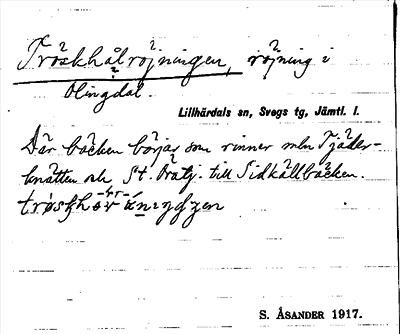 Tröskhålröjningen, röjning i
Olingdal.
Lillhärdals sn, Svegs tg, Jämtl. l.
Där bäcken börjar som rinner mln Tjäder-
knätten och St. Örätj. till Sidkällbäcken.
S. ÅSANDER 1917.